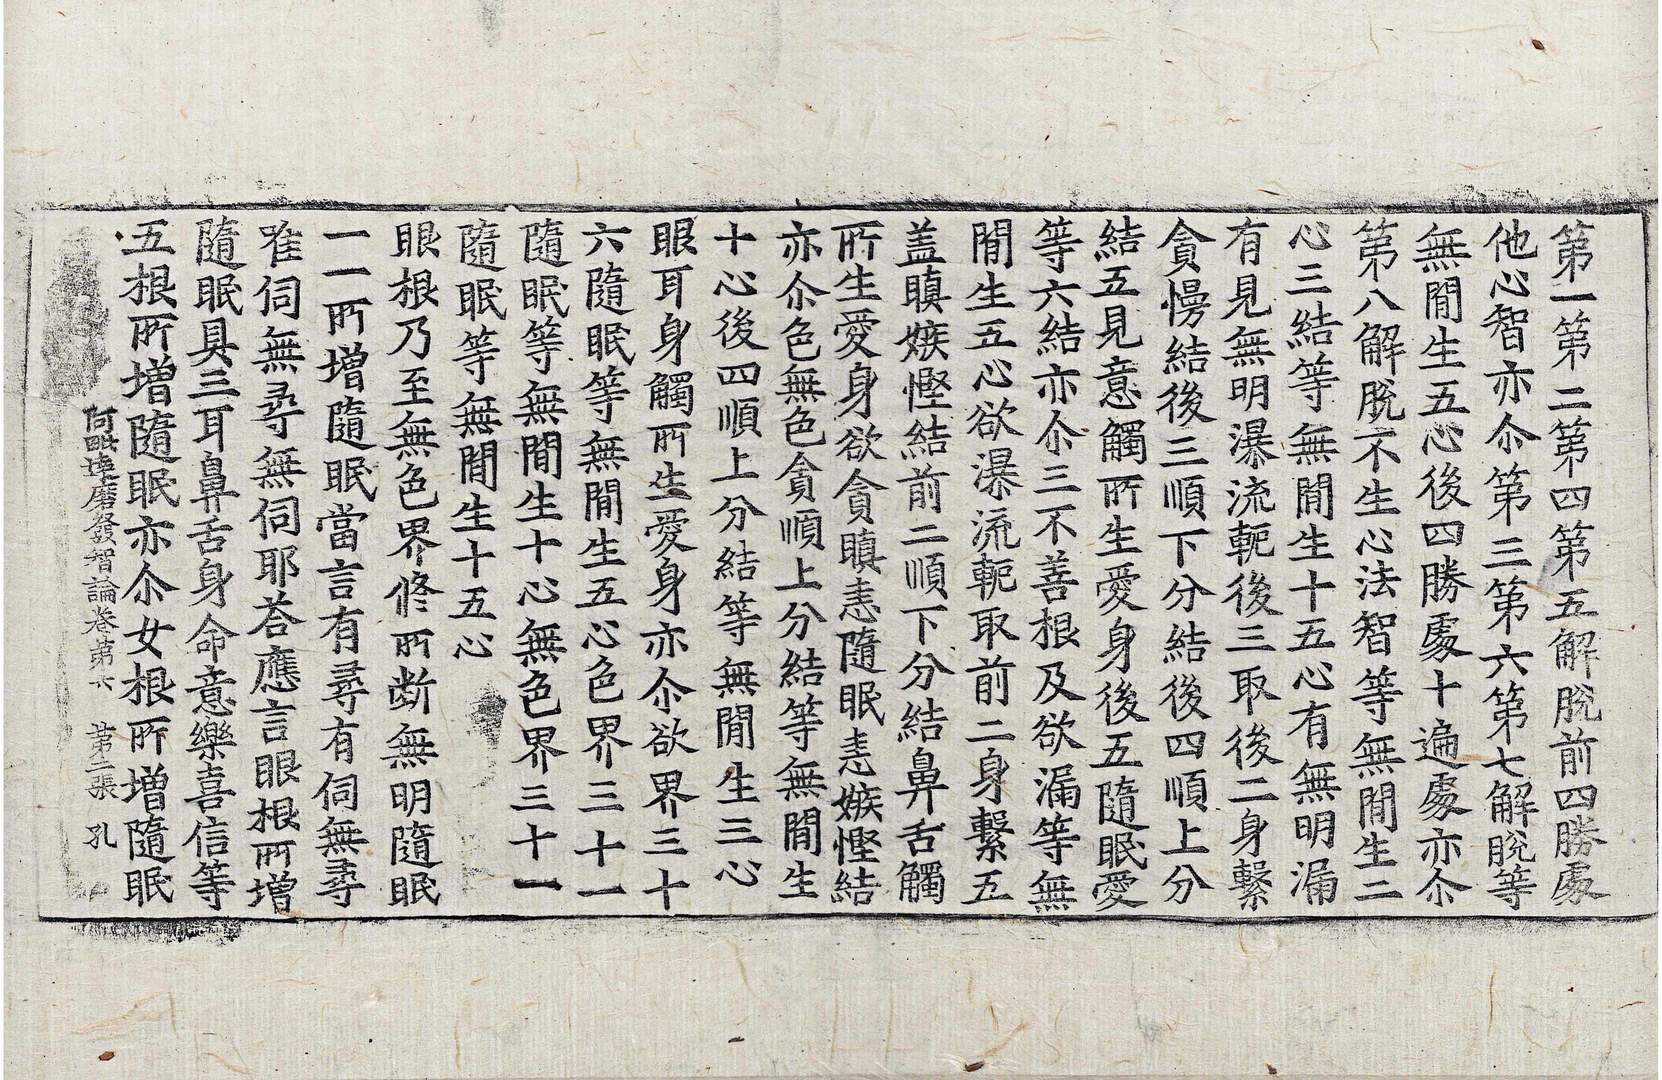 第一第二第四第五解脫前四勝處
他心智亦尒第三第六第七解脫等
無閒生五心後四勝處十遍處亦尒
第八解脫不生心法智等無閒生二
心三結等無閒生十五心有無明漏
有見無明瀑流軛後三取後二身繫
貪慢結後三順下分結後四順上分
結五見意觸所生愛身後五隨眠愛
等六結亦尒三不善根及欲漏等無
閒生五心欲瀑流軛取前二身繫五
盖瞋嫉慳結前二順下分結鼻舌觸
所生愛身欲貪瞋恚隨眠恚嫉慳結
亦尒色無色貪順上分結等無閒生
十心後四順上分結等無閒生三心
眼耳身觸所生愛身亦尒欲界三十
六隨眠等無閒生五心色界三十一
隨眠等無閒生十心無色界三十一
隨眠等無閒生十五心
眼根乃至無色界修所斷無明隨眠
一一所增隨眠當言有尋有伺無尋
唯伺無尋無伺耶荅應言眼根所增
隨眠具三耳鼻舌身命意樂喜信等
五根所增隨眠亦尒女根所增隨眠
阿毗達磨發智論卷第六 第二張 孔